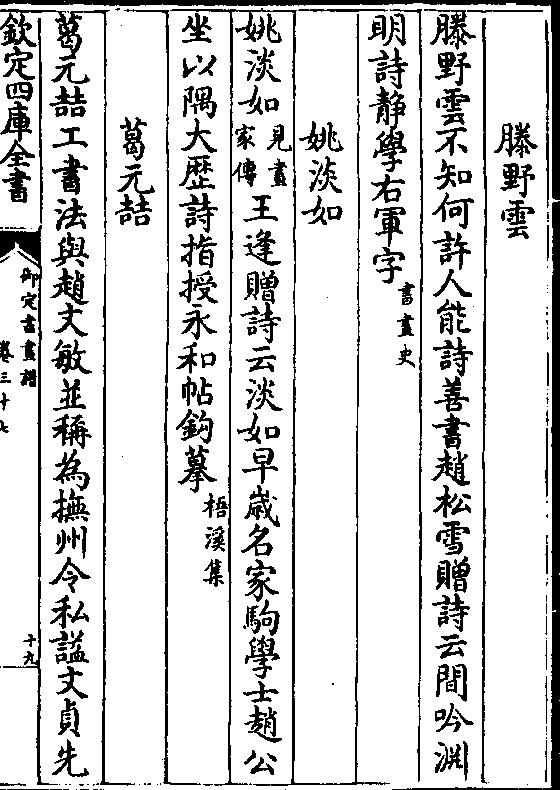 滕野雲
滕野雲不知何許人能詩善書趙松雪贈詩云間吟淵
明詩靜學右軍字書畫史
姚淡如
姚淡如見畫家傳王逢贈詩云淡如早歲名家駒學士趙公
坐以隅大歷詩指授永和帖鈎摹梧溪集
葛元喆
葛元喆工書法與趙文敏並稱為撫州令私謚文貞先
欽定四庫全書
御定書畫譜
卷三十七
十九